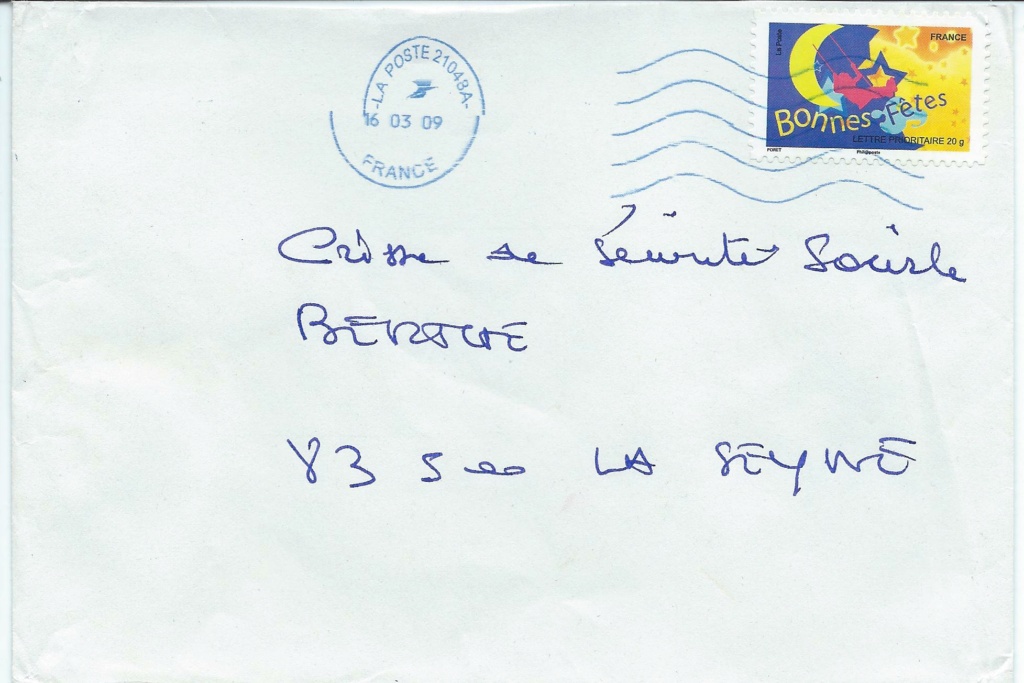 -LA POSTE 21043A-
16 03 09
FRANCE
La Poste
FRANCE
Bonnes Fêtes
LETTRE PRIORITAIRE 20 g
FORET
Phil@poste
Caisse de Sécurité Sociale
BERTHE
83500 LA SEYNE